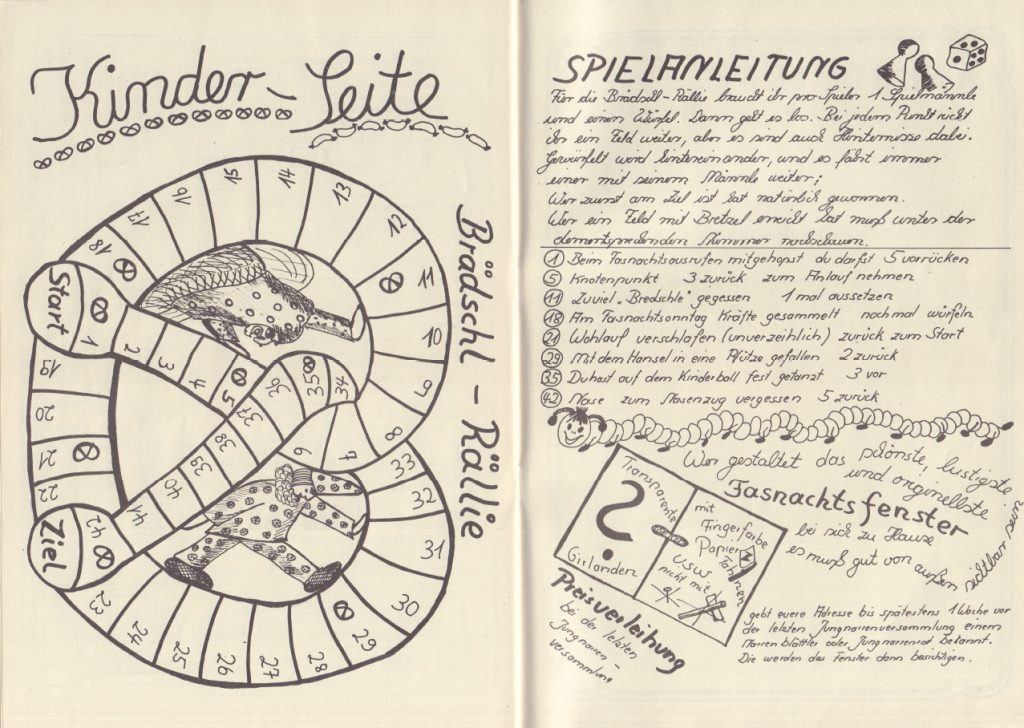 Kinder-Seite
Brädschl-Rällie
Start
Ziel
1
2
3
4
5
6
7
8
9
10
11
12
13
14
15
16
17
18
19
20
21
22
23
24
25
26
27
28
29
30
31
32
33
34
35
36
37
38
39
40
41
42
SPIELANLEITUNG
Für die Brädschl-Rällie braucht ihr pro Spieler 1 Spielmännle
und einen Würfel. Dann geht es los. Bei jedem Punkt rückt
ihr ein Feld weiter, aber es sind auch Hinternisse dabei.
Gewürfelt wird hintereinander, und es fährt immer
einer mit seinem Männle weiter;
Wer zuerst am Ziel ist hat natürlich gewonnen.
Wer ein Feld mit Bretzel erreicht hat muß unter der
dementsprechenden Nummer nachschauen.
1 Beim Fasnachtsausrufen mitgehopst du darfst 5 vorrücken
5 Knotenpunkt 3 zurück zum Anlauf nehmen
11 Zuviel "Bredschle" gegessen 1 mal aussetzen
18 Am Fasnachtsonntag Kräfte gesammelt nochmal würfeln
21 Wohlauf verschlafen (unverzeihlich) zurück zum Start
29 Mit dem Hansel in eine Pfütze gefallen 2 zurück
35 Du hast auf dem Kinderball fest getanzt 3 vor
42 Nase zum Nasenzug vergessen 5 zurück
Wer gestaltet das schönste, lustigste
und originellste
Fasnachtsfenster
bei sich zu Hause
es muß gut von außen sichtbar sein
Transparente
?
Girlanden
mit
Fingerfarbe
Papier
Fahnen
usw
nicht mit
Preisverleihung
bei der letzten
Jungnarren-
versammlung
gebt euere Adresse bis spätestens 1 Woche vor
der letzten Jungnarrenversammlung einem
Narrenblättler oder Jungnarrenrat bekannt.
Die werden das Fenster dann besichtigen.